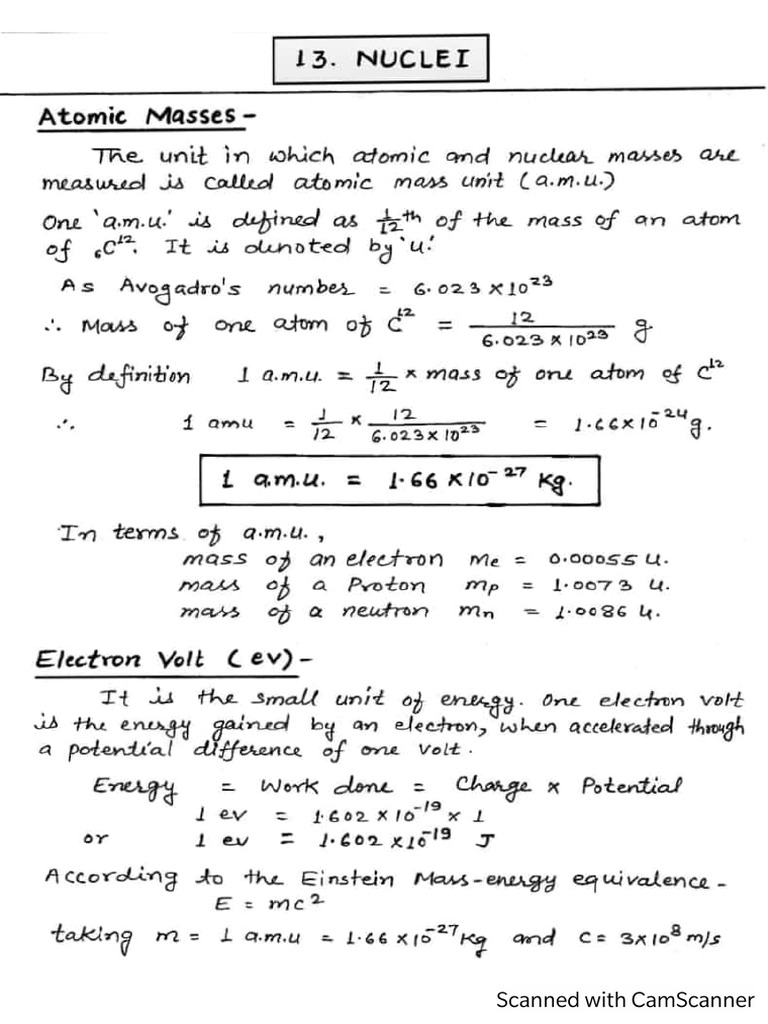 13. NUCLEI
Atomic Masses -
The unit in which atomic and nuclear masses are
measured is called atomic mass unit (a.m.u.)
One 'a.m.u.' is defined as 1/12 th of the mass of an atom
of ₆C¹². It is denoted by 'u.'
As Avogadro's number = 6.023 × 10²³
∴ Mass of one atom of C¹² = 12 / 6.023 × 10²³ g
By definition 1 a.m.u. = 1/12 × mass of one atom of C¹²
∴ 1 amu = 1/12 × 12 / 6.023 × 10²³ = 1.66 × 10⁻²⁴ g.
1 a.m.u. = 1.66 × 10⁻²⁷ Kg.
In terms of a.m.u.,
mass of an electron me = 0.00055 u.
mass of a Proton mp = 1.0073 u.
mass of a neutron mn = 1.0086 u.
Electron Volt (ev) -
It is the small unit of energy. One electron volt
is the energy gained by an electron, when accelerated through
a potential difference of one volt.
Energy = Work done = Charge × Potential
1 ev = 1.602 × 10⁻¹⁹ × 1
or 1 ev = 1.602 × 10⁻¹⁹ J
According to the Einstein Mass-energy equivalence -
E = mc²
taking m = 1 a.m.u = 1.66 × 10⁻²⁷ Kg and c = 3×10⁸ m/s
Scanned with CamScanner